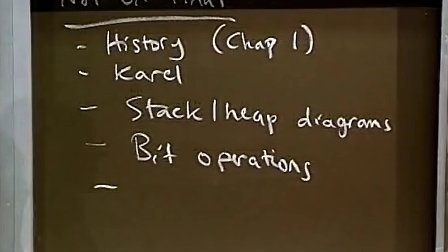 Not on final
- History (Chap 1)
- Karel
- Stack/heap diagrams
- Bit operations
-